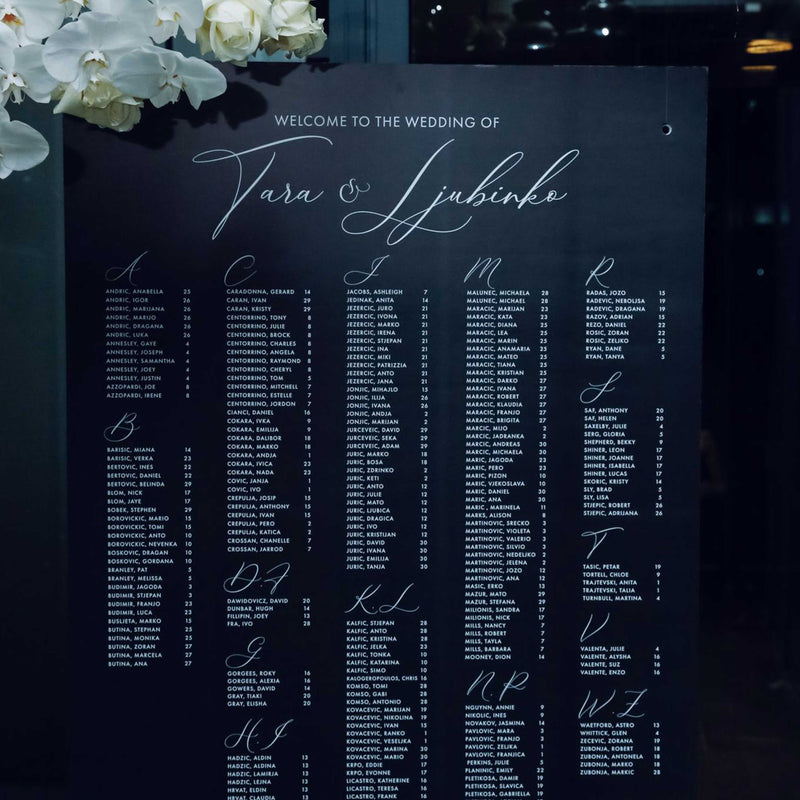 WELCOME TO THE WEDDING OF
Tara & Ljubinko
A
ANDRIC, ANABELLA 25
ANDRIC, IGOR 26
ANDRIC, MARIJANA 26
ANDRIC, MARIJO 26
ANDRIC, DRAGANA 26
ANDRIC, LUKA 26
ANNESLEY, GAYE 4
ANNESLEY, JOSEPH 4
ANNESLEY, SAMANTHA 4
ANNESLEY, JOEY 4
ANNESLEY, JUSTIN 4
AZZOPARDI, JOE 8
AZZOPARDI, IRENE 8
B
BARISIC, MIJANA 14
BARISIC, VERKA 23
BERTOVIC, INES 22
BERTOVIC, DANIEL 22
BERTOVIC, BELINDA 29
BLOM, NICK 17
BLOM, JAYE 17
BOBEK, STEPHEN 29
BOROVICKIC, MARIO 15
BOROVICKIC, TOMI 15
BOROVICKIC, ANTO 10
BOROVICKIC, NEVENKA 10
BOSKOVIC, DRAGAN 10
BOSKOVIC, GORDANA 10
BRANLEY, PAT 5
BRANLEY, MELISSA 5
BUDIMIR, JAGODA 3
BUDIMIR, STJEPAN 3
BUDIMIR, FRANJO 23
BUDIMIR, LUCA 23
BUSLJETA, MARKO 15
BUTINA, STEPHAN 25
BUTINA, MONIKA 25
BUTINA, ZORAN 27
BUTINA, MARCELA 27
BUTINA, ANA 27
C
CARADONNA, GERARD 14
CARAN, IVAN 29
CARAN, KRISTY 29
CENTORRINO, TONY 8
CENTORRINO, JULIE 8
CENTORRINO, BROCK 8
CENTORRINO, CHARLES 8
CENTORRINO, ANGELA 8
CENTORRINO, RAYMOND 8
CENTORRINO, CHERYL 8
CENTORRINO, TOM 5
CENTORRINO, MITCHELL 7
CENTORRINO, ESTELLE 7
CENTORRINO, JORDON 7
CIANCI, DANIEL 16
COKARA, IVKA 9
COKARA, EMILIJA 9
COKARA, DALIBOR 18
COKARA, MARKO 18
COKARA, ANDJA 1
COKARA, IVICA 23
COKARA, NADA 23
COVIC, JANJA 1
COVIC, IVO 1
CREPULJA, JOSIP 15
CREPULJA, ANTHONY 15
CREPULJA, IVAN 15
CREPULJA, PERO 2
CREPULJA, KATICA 2
CROSSAN, CHANELLE 7
CROSSAN, JARROD 7
D-F
DAWIDOVICZ, DAVID 20
DUNBAR, HUGH 14
FILLIPIN, JOEY 13
FRA, IVO 28
G
GORGEES, ROKY 16
GORGEES, ALEXIA 16
GOWERS, DAVID 14
GRAY, TIAKI 20
GRAY, ELISHA 20
H-J
HADZIC, ALDIN 13
HADZIC, ALDINA 13
HADZIC, LAMIRJA 13
HADZIC, LEJNA 13
HRVAT, ELDIN 13
HRVAT, CLAUDIA 13
J
JACOBS, ASHLEIGH 7
JEDINAK, ANITA 14
JEZERCIC, JURO 21
JEZERCIC, IVONA 21
JEZERCIC, MARKO 21
JEZERCIC, IRENA 21
JEZERCIC, STJEPAN 21
JEZERCIC, INA 21
JEZERCIC, MIKI 21
JEZERCIC, PATRIZZIA 21
JEZERCIC, ANTO 21
JEZERCIC, JANA 21
JONJIC, MIHAJLO 15
JONJIC, ILIJA 26
JONJIC, IVANA 26
JONJIC, ANDJA 2
JONJIC, MARIJAN 2
JURCEVIC, DAVID 29
JURCEVIC, SEKA 29
JURCEVIC, ADAM 29
JURIC, MARKO 18
JURIC, BOSA 18
JURIC, ZDRINKO 2
JURIC, KETI 2
JURIC, ANTO 12
JURIC, JULIE 12
JURIC, MATO 12
JURIC, LJUBICA 12
JURIC, DRAGICA 12
JURIC, IVO 12
JURIC, KRISTIJAN 12
JURIC, DAVID 30
JURIC, IVANA 30
JURIC, EMILIJA 30
JURIC, TANJA 30
K-L
KALFIC, STJEPAN 28
KALFIC, ANTO 28
KALFIC, KRISTINA 28
KALFIC, JELKA 23
KALFIC, TONKA 10
KALFIC, KATARINA 10
KALFIC, SIMO 10
KALOGEROPOULOS, CHRIS 16
KOMSO, TOMI 28
KOMSO, GABI 28
KOMSO, ANTONIO 28
KOVACEVIC, MARIJAN 19
KOVACEVIC, NIKOLINA 19
KOVACEVIC, IVAN 15
KOVACEVIC, RANKO 1
KOVACEVIC, VESELJKA 1
KOVACEVIC, MARINA 30
KOVACEVIC, MARIO 30
KRPO, EDDIE 17
KRPO, YVONNE 17
LICASTRO, KATHERINE 16
LICASTRO, TERESA 16
LICASTRO, FRANK 16
M
MALUNEC, MICHAELA 28
MALUNEC, MICHAEL 28
MARACIC, MARIJAN 23
MARACIC, KATA 23
MARACIC, DIANA 25
MARACIC, LEA 25
MARACIC, MARIN 25
MARACIC, ANAMARIA 25
MARACIC, MATEO 25
MARACIC, TIANA 25
MARACIC, KRISTIAN 25
MARACIC, DARKO 27
MARACIC, IVANA 27
MARACIC, ROBERT 27
MARACIC, KLAUDIA 27
MARACIC, FRANJO 27
MARACIC, BRIGITA 27
MARCIC, MIJO 2
MARCIC, JADRANKA 2
MARCIC, ANDREAS 30
MARCIC, MICHAELA 30
MARIC, JAGODA 23
MARIC, PERO 23
MARIC, FIZON 10
MARIC, VJEKOSLAVA 10
MARIC, DANIEL 30
MARIC, ANA 30
MARIC , MARINELA 11
MARKS, ALISON 8
MARTINOVIC, SRECKO 3
MARTINOVIC, VIOLETA 3
MARTINOVIC, VALERIO 3
MARTINOVIC, SILVIO 3
MARTINOVIC, NEDELJKO 2
MARTINOVIC, JELENA 2
MARTINOVIC, JOZO 12
MARTINOVIC, ANA 12
MASIC, ERKO 13
MAZUR, MATO 29
MAZUR, STEFANA 29
MILIONIS, SANDRA 17
MILIONIS, NICK 17
MILLS, NANCY 7
MILLS, ROBERT 7
MILLS, TAYLA 7
MILLS, BARBARA 7
MOONEY, DION 14
N-R
NGUYNN, ANNIE 9
NIKOLIC, INES 9
NOVAKOV, JASMINA 14
PAVLOVIC, MARA 3
PAVLOVIC, FRANJO 3
PAVLOVIC, ZELJKA 1
PAVLOVIC, FRANJICA 1
PERKINS, JULIE 5
PLANINIC, EMILY 22
PLETIKOSA, DAMIR 19
PLETIKOSA, SLAVICA 19
PLETIKOSA, GABRIELLA 19
R
RADAS, JOZO 15
RADEVIC, NEBOLJSA 19
RADEVIC, DRAGANA 19
RAZOV, ADRIAN 15
REZO, DANIEL 22
ROSIC, ZORAN 22
ROSIC, ZELJKO 22
RYAN, DANE 5
RYAN, TANYA 5
S
SAF, ANTHONY 20
SAF, HELEN 20
SAXELBY, JULIE 4
SERG, GLORIA 5
SHEPHERD, BEKKY 9
SHINER, LEON 17
SHINER, JOANNE 17
SHINER, ISABELLA 17
SHINER, LUCAS 17
SKORIC, KRISTY 14
SLY, BRAD 5
SLY, LISA 5
STJEPIC, ROBERT 26
STJEPIC, ADRIJANA 26
T
TASIC, PETAR 19
TORTELL, CHLOE 9
TRAJTEVSKI, ANITA 1
TRAJTEVSKI, TALIA 1
TURNBULL, MARTINA 4
V
VALENTA, JULIE 4
VALENTE, ALYSHA 16
VALENTE, SUZ 16
VALENTE, ENZO 16
W-Z
WAETFORD, ASTRO 13
WHITTICK, GLEN 4
ZECEVIC, ZORANA 19
ZUBONJA, ROBERT 18
ZUBONJA, ANTONELA 18
ZUBONJA, MARKO 18
ZUBONJA, MARKIC 28